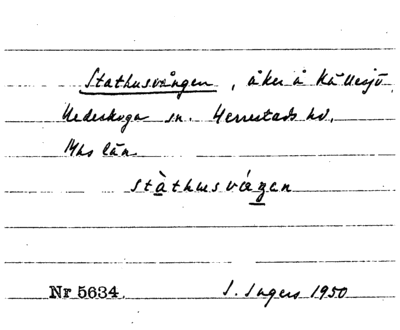 Stathusvången, åker å Källesjö,
Nedeskoga sn. Herrestads hd.
Mhs län
stàthusvá̱ŋen
Nr 5634. I. Ingers 1950